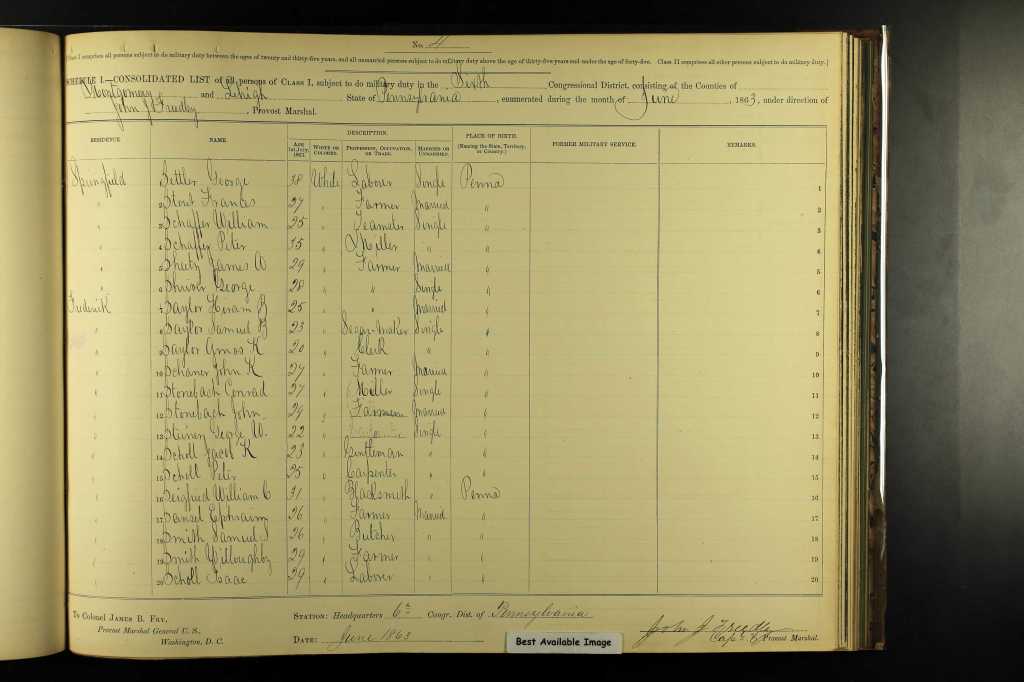 No. 4
[Class I comprises all persons subject to do military duty between the ages of twenty and thirty-five years, and all unmarried persons subject to do military duty above the age of thirty-five years and under the age of forty-five. Class II comprises all other persons subject to do military duty.]
SCHEDULE I.—CONSOLIDATED LIST of all persons of CLASS I, subject to do military duty in the Sixth Congressional District, consisting of the Counties of
Montgomery and Lehigh State of Pennsylvania, enumerated during the month of June, 1863, under direction of
John J Freedley, Provost Marshal.
RESIDENCE. NAME. DESCRIPTION. PLACE OF BIRTH. FORMER MILITARY SERVICE. REMARKS.
AGE 1st July, 1863. WHITE OR COLORED. PROFESSION, OCCUPATION, OR TRADE. MARRIED OR UNMARRIED. (Naming the State, Territory, or Country.)
Springfield Settler George 38 White Laborer Single Penna 1
" 2 Stout Frances 27 " Farmer Married " 2
" 3 Schaffer William 25 " Teamster Single " 3
" 4 Schaffer Peter " Miller " " 4
" 5 James 29 " Farmer Married " 5
" 6 Shriver George 28 " " Single " 6
Frederick 7 Saylor Hiram 25 " " Married " 7
" 8 Saylor Samuel 23 " Segar-maker Single " 8
" 9 Saylor Amos K 20 " Clerk " " 9
" 10 Schaner John K 27 " Farmer Married " 10
" 11 Stonebach Conrad 27 " Miller Single " 11
" 12 Stonebach John 29 " Farmer Married " 12
" 13 George W. 22 " Single " 13
" 14 Scholl Jacob K 23 " Gentleman " " 14
" 15 Scholl Peter 25 " Carpenter " " 15
" 16 Seigfried William C 31 " Blacksmith " Penna 16
" 17 Sansel Ephraim 26 " Farmer Married " 17
" 18 Smith Samuel S 26 " Butcher " " 18
" 19 Smith Willoughby 29 " Farmer " " 19
" 20 Scholl Isaac 29 " Laborer " " 20
To Colonel JAMES B. FRY,
Provost Marshal General U. S.,
Washington, D. C.
STATION: Headquarters 6th Congr. Dist. of Pennsylvania
DATE: June 1863
John J Freedley
Capt & Provost Marshal.
Best Available Image